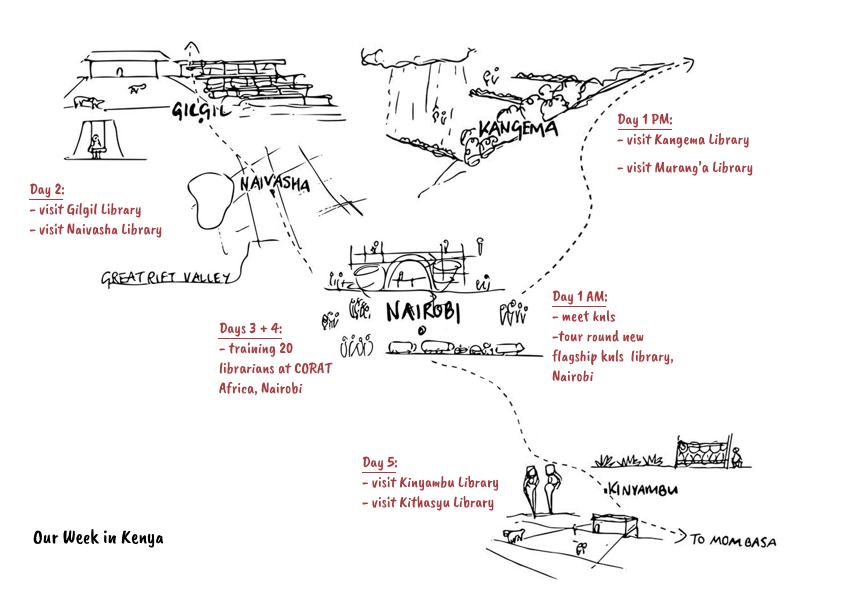 GILGIL
KANGEMA
Day 1 PM:
- visit Kangema Library
- visit Murang'a Library
NAIVASHA
Day 2:
- visit Gilgil Library
- visit Naivasha Library
GREAT RIFT VALLEY
NAIROBI
Day 1 AM:
- meet knls
-tour round new
flagship knls library,
Nairobi
Days 3 + 4:
- training 20
librarians at CORAT
Africa, Nairobi
Day 5:
- visit Kinyambu Library
- visit Kithasyu Library
KINYAMBU
Our Week in Kenya
TO MOMBASA